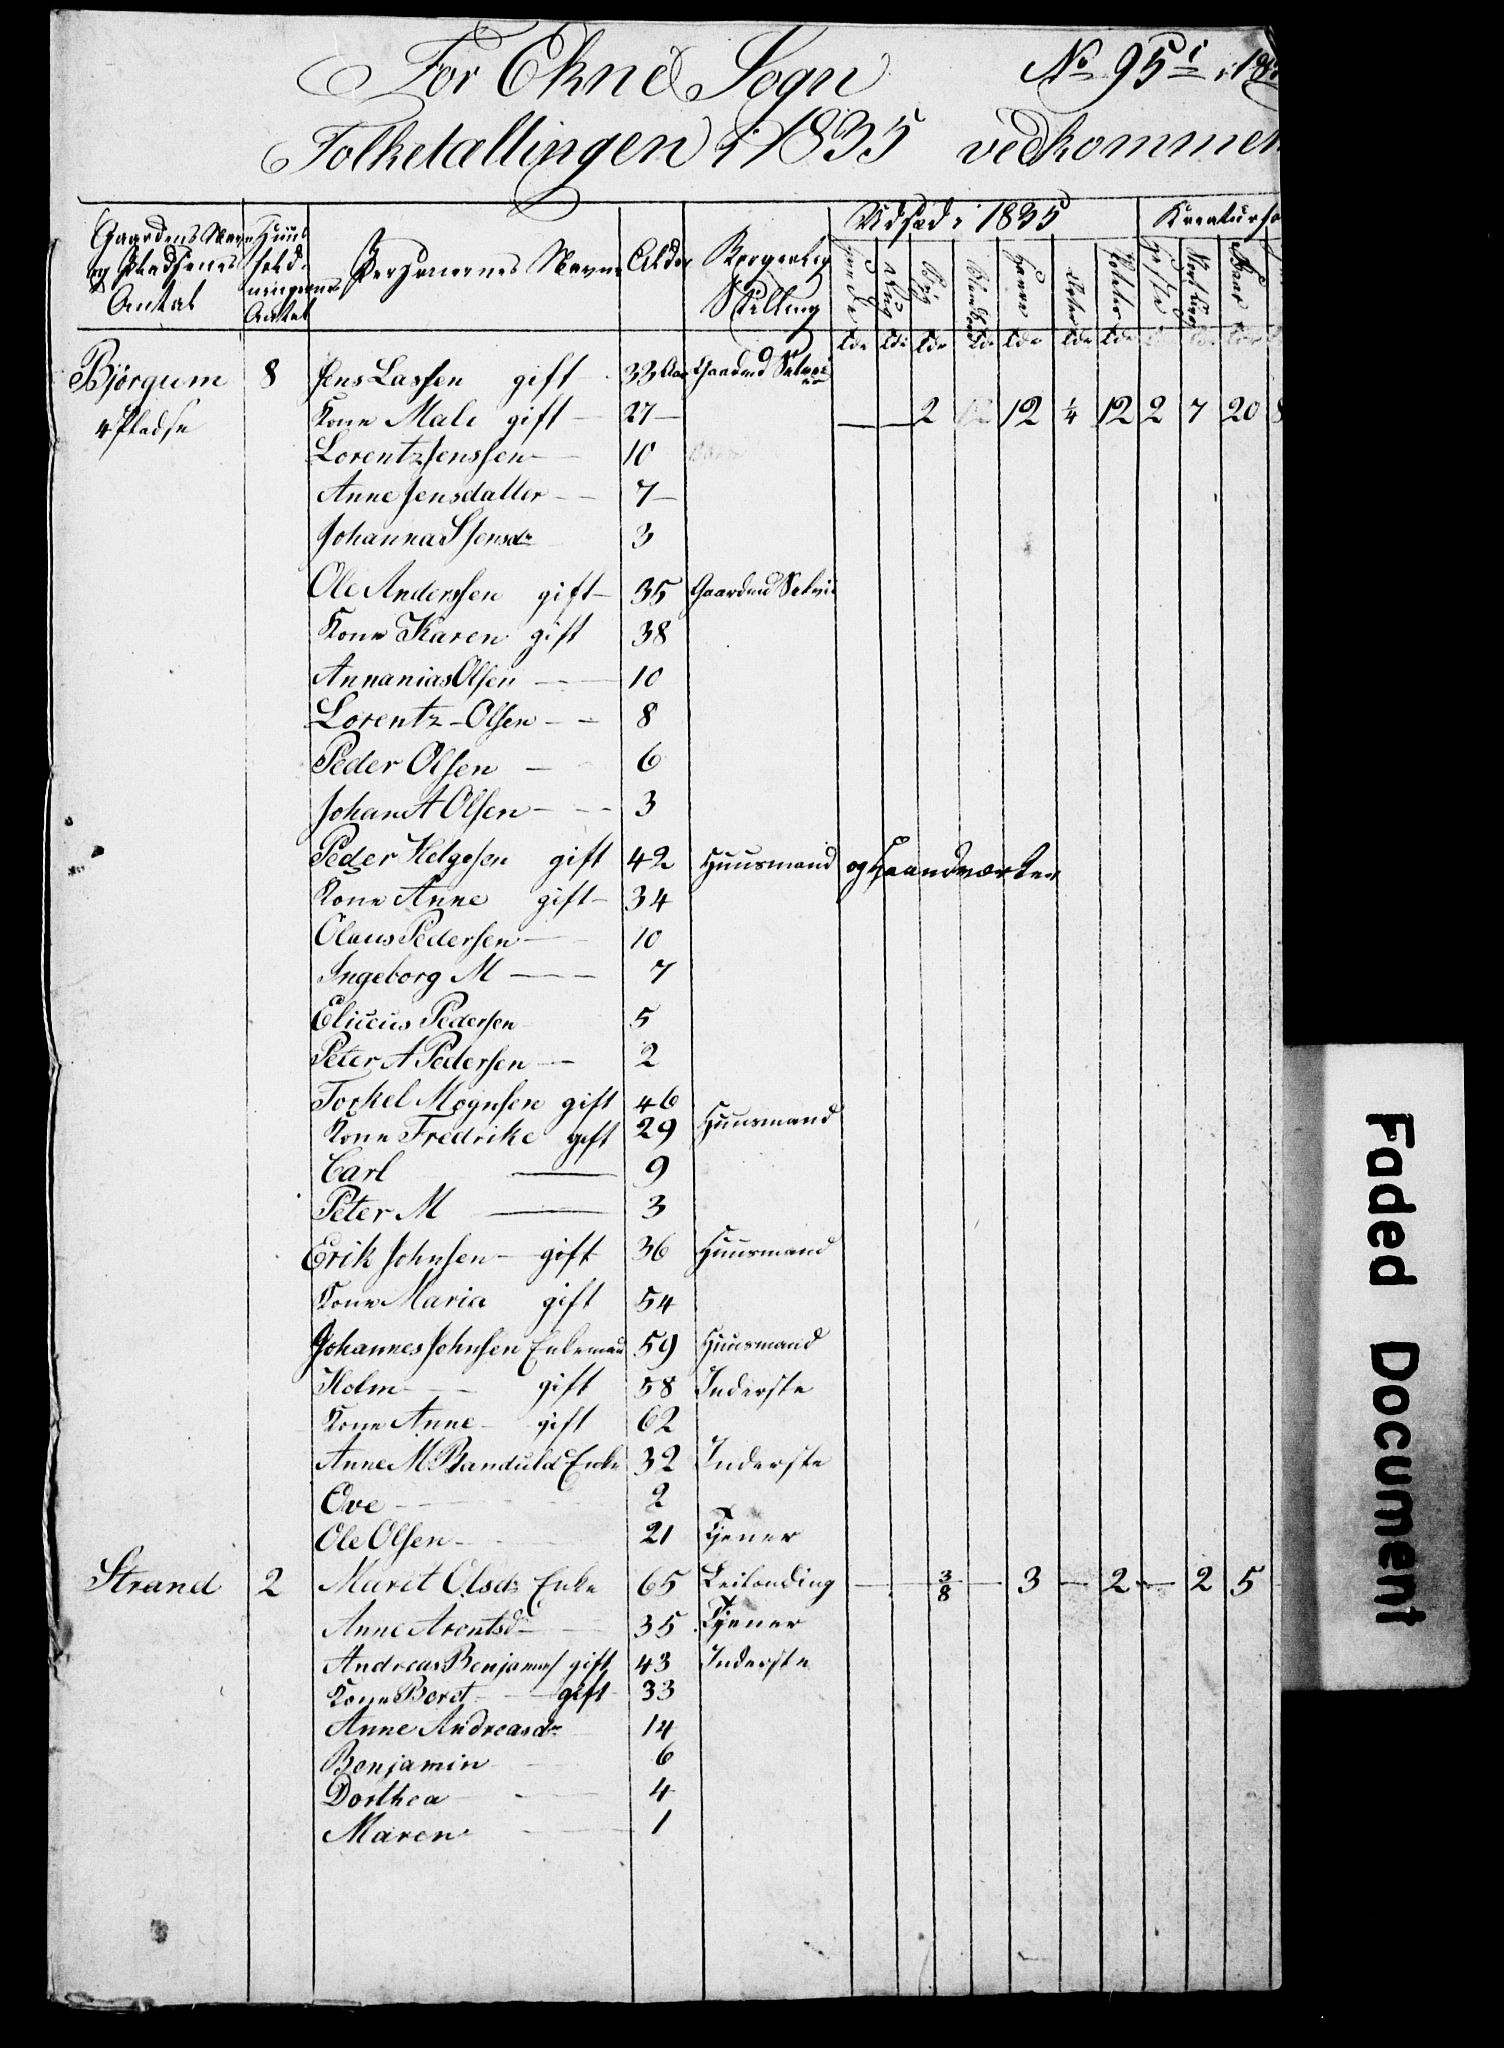 For Ekne Sogn No 95 i
Folketællingen i 1835 vedkommen
Gaardens Navn og Pladsenes Antal Huusholdningernes Antal Personernes Navne Alder Borgerlig Stilling Udsæd i 1835 Kreaturho
Rug Byg Havre Erter Poteter Heste Faar
Tde Tde Tde Tde Tde Tde Tde
Björgum 8 Jens Lassen gift 33 Aar Gaardmd Selveier
4 Pladse Kone Mali gift 27 — — 2 12 ¼ 12 2 7 20 8
Lorentz Jenssen 10
Anne Jensdatter 7
Johanna S Jensdr 3
Ole Anderssen gift 35 Gaardmd Selvei
Kone Karen gift 38
Annanias Olsen 10
Lorentz Olsen 8
Peder Olsen 6
Johan A Olsen 3
Peder Helgesen gift 42 Huusmand og Haandværker
Kone Anne gift 34
Olaus Pedersen 10
Ingeborg M — 7
Eliceus Pedersen 5
Peter A Pedersen 2
Torkel Mognsen gift 46
Kone Fredrike gift 29 Huusmand
Carl — 9
Peter M — 3
Erik Johnsen gift 36 Huusmand
Kone Maria gift 54
Johannes Johnsen Enkemand 59 Huusmand
Holm gift 58 Inderste
Kone Anne gift 62
Anne M Banduld Enke 32 Inderste
Ove 2
Ole Olsen 21 Tjener
Strand 2 Marit Olsdr Enke 65 Leilænding — 3/8 — 3 — 2 — 2 5
Anne Arentsd 35 Tjener
Andreas Benjamins gift 43 Inderste
Kone Beret gift 33
Anne Andreasdr 14
Benjamin 6
Dorthea 4
Maren 1
Faded Document